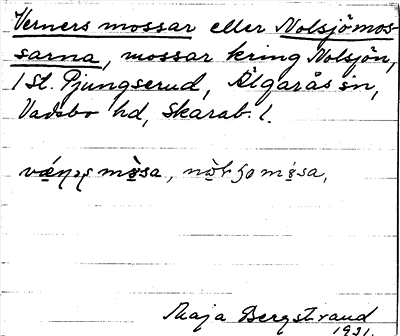 Verners mossar eller Nolsjömos-
sarna, mossar kring Nolsjön,
1 St. Pjungserud, Älgarås sn,
Vadsbo hd, Skarab. l.
Maja Bergstrand
1931.